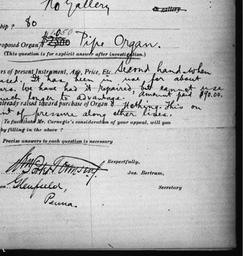 No Gallery
a gallery.
ship ? 80
1050
Proposed Organ? Pipe Organ.
(This question is for explicit answer after investigation.)
of present Instrument, Age, Price, Etc. Second hand when
It has in use for about
We have had it repaired, but cannot use
much longer to advantage. amount paid $90.00.
already raised toward purchase of Organ? Nothing. This on
of pressure along other lines.
To facilitate Mr. Carnegie's consideration of your appeal, will you
by filling in the above?
Precise answers to each question is necessary
Respectfully,
Jas. Bertram,
Glenfield, Secretary
Penna.